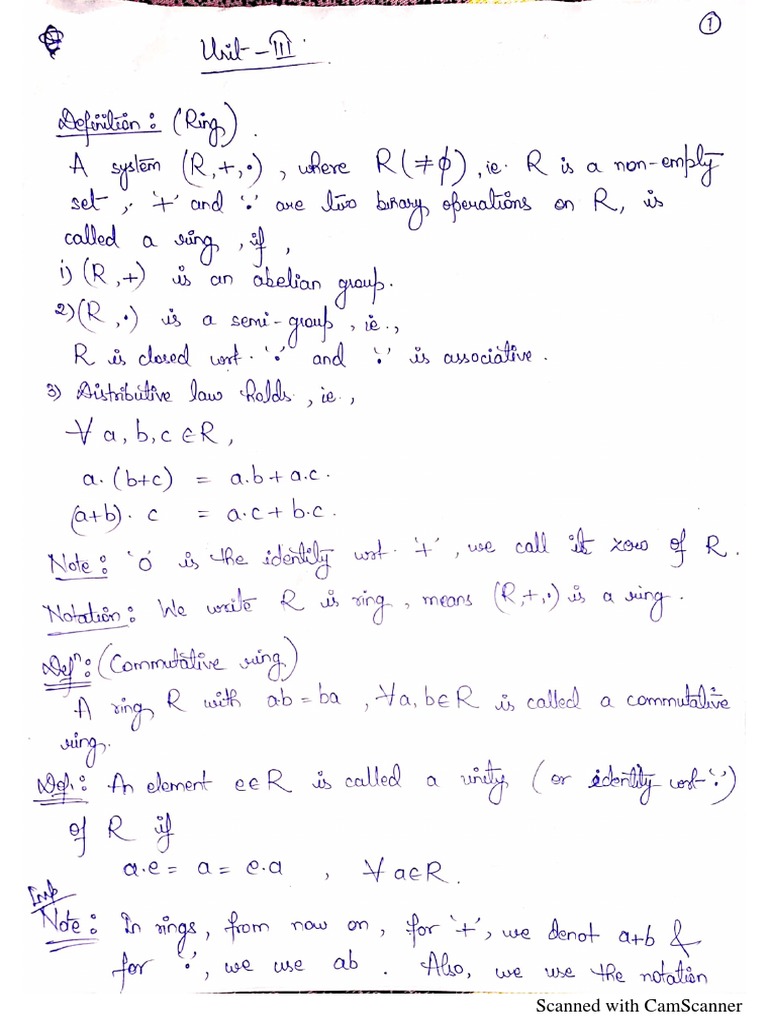 1
Unit-III.
Definition: (Ring).
A system (R,+,·), where R(≠ϕ), ie. R is a non-empty
set, '+' and '·' are two binary operations on R, is
called a ring, if,
i) (R,+) is an abelian group.
2) (R,·) is a semi-group, ie.,
R is closed wrt. '·' and '·' is associative.
3) Distributive law holds, ie.,
∀ a,b,c ∈ R,
a.(b+c) = a.b + a.c.
(a+b). c = a.c + b.c.
Note: '0' is the identity wrt. '+', we call it zero of R.
Notation: We write R is ring, means (R,+,·) is a ring.
Defⁿ: (Commutative ring)
A ring R with ab = ba, ∀a,b∈R is called a commutative
ring.
Def.: An element e∈R is called a unity (or identity wrt '·')
of R if
a.e = a = e.a , ∀ a∈R.
Imp
Note: In rings, from now on, for '+', we denot a+b &
for '·', we use ab. Also, we use the notation
Scanned with CamScanner